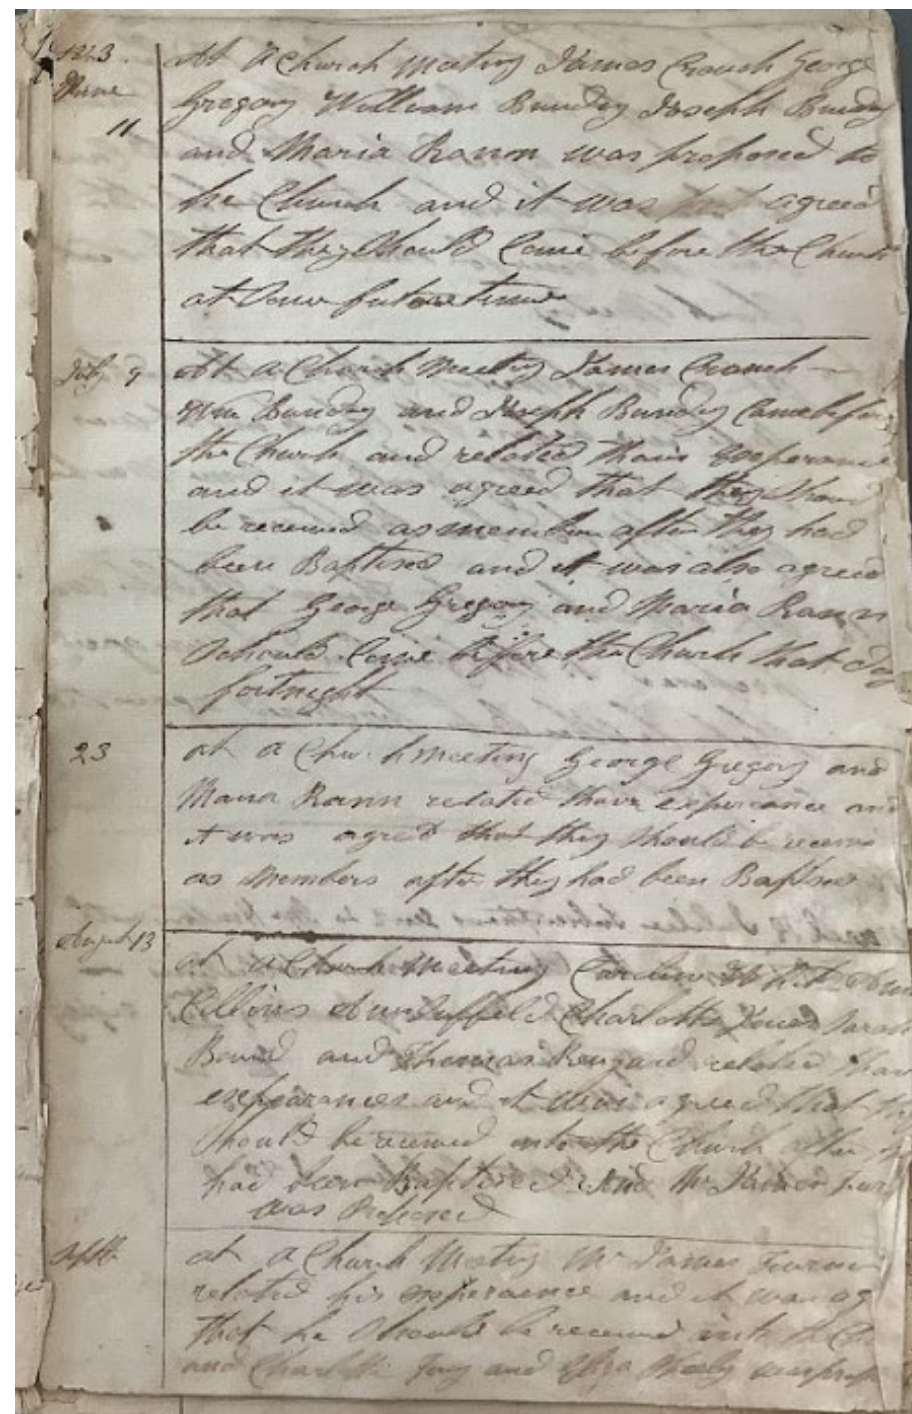 1843. At a Church Meeting James Crouch George
June Gregory William Bunday Joseph Bunday
11 and Maria Rann was proposed to
he Church and it was agreed
that they Should Come before the Church
at Some future time
July 9 At a Church Meeting James Crouch
Wm Bunday and Joseph Bunday Came before
the Church and related thair Experance
and it was agreed that they Shoud
be received as member after they had
been Baptised and it was also agreed
that George Gregory and Maria Rann
Schould Come before the Church that Day
fortnight
23 at a Church meeting George Gregory and
Maria Rann related thair experiance and
it was agreed that they Should be receive
as Members after they had been Baptised
August 13 at a Church Meeting Caroline White Ann
Collins Ann Suffield Charlotte Jones Sarah
and Thomas related thair
experances and it was agreed that they
Should be received into the Church after
had been Baptised And Mr James
was Proposed
Septbr at a Church Meeting Mr James Turner
related his experaence and it was ag
that he Should be received into the Ch
and Charlotte and Eliza was prop